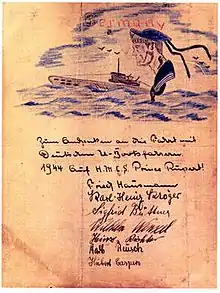 Germany
Zum Andenken an die Fahrt mit
Deutschen U-Bootsfahrern
1944 Auf H.M.C.S. Prince Rupert!
Fried Hausmann
Karl-Heinz
Sigfrid Büttner
Wilhelm
Heinz
Reusch
Hubert Caspers